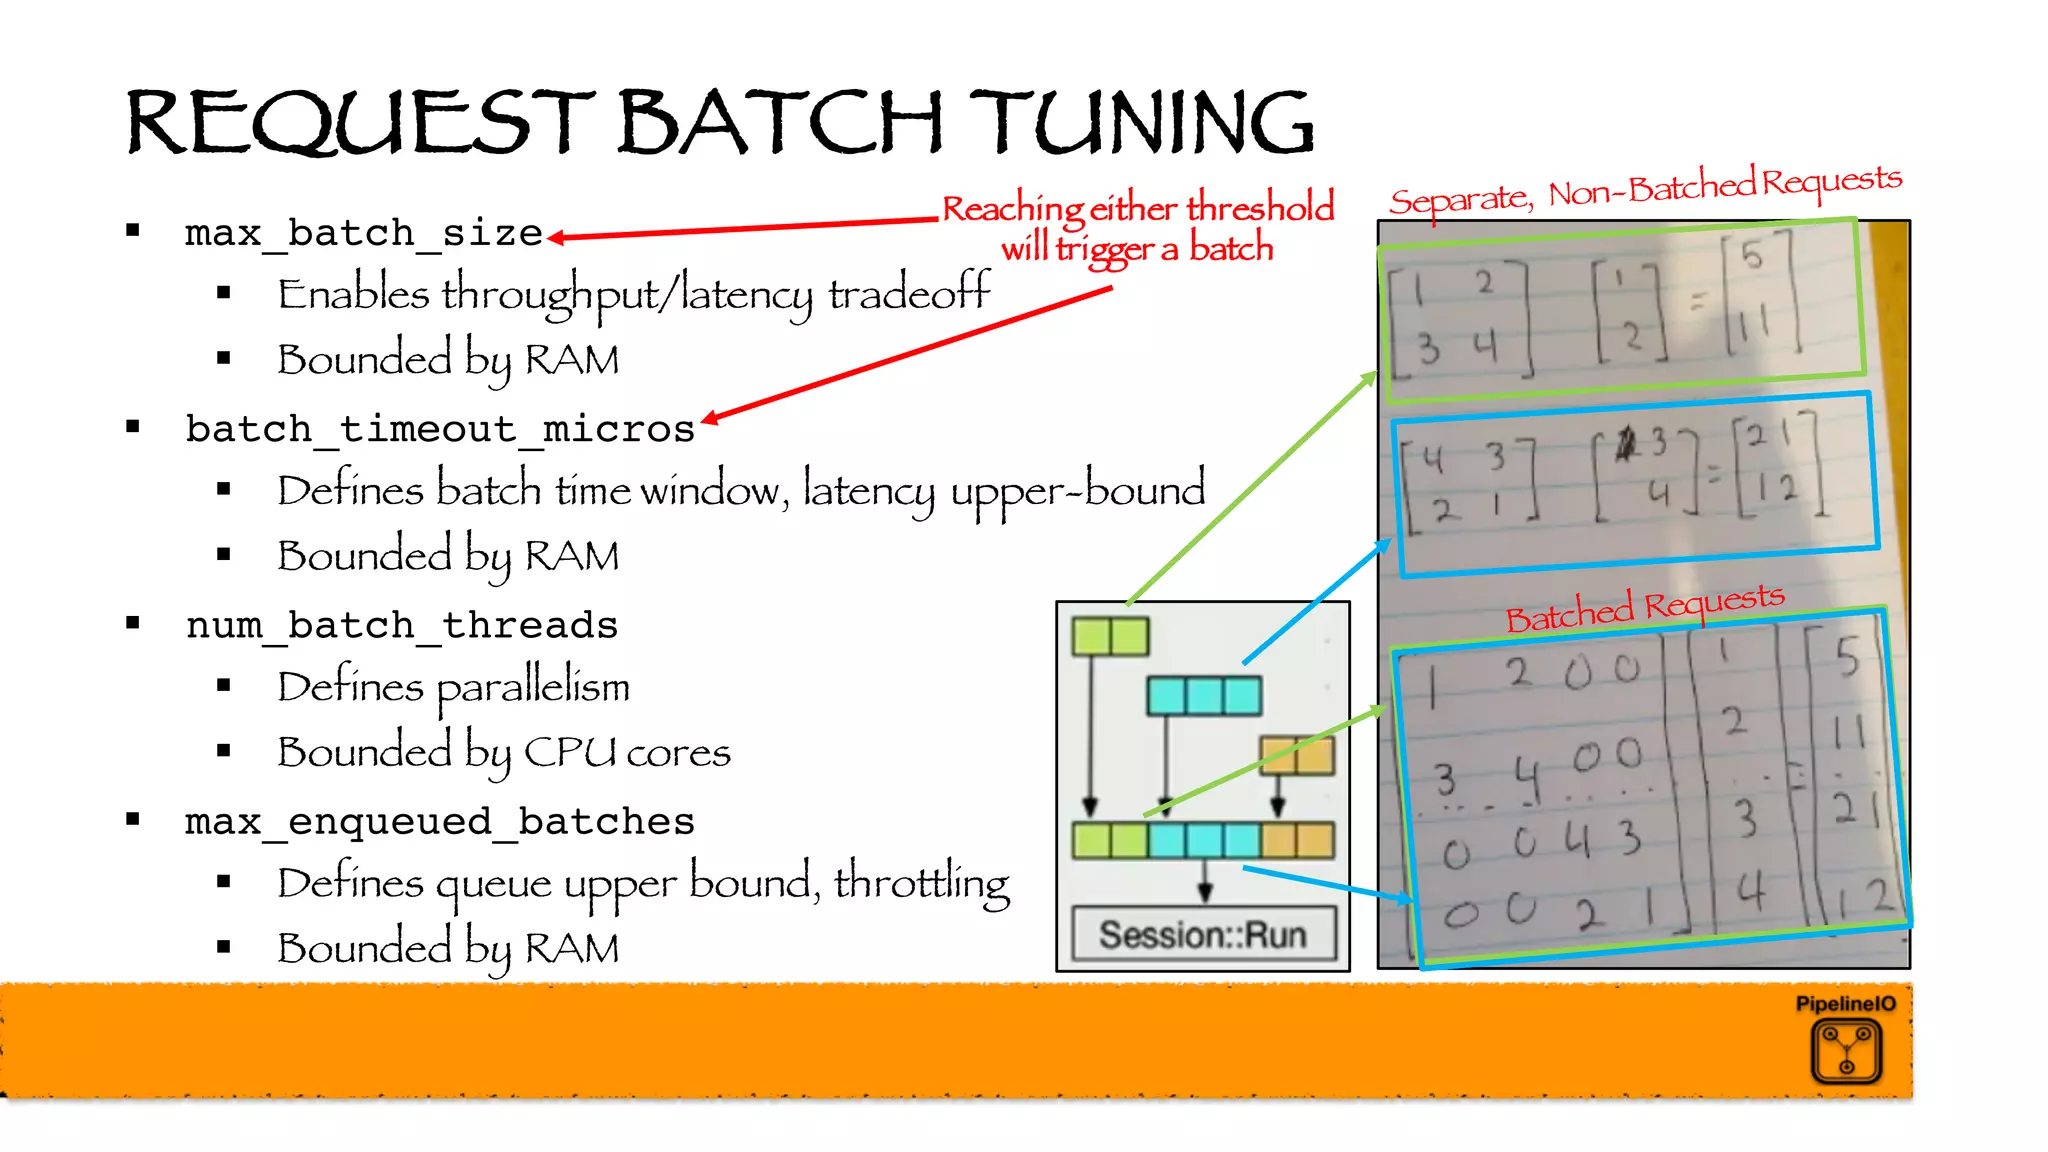 REQUEST BATCH TUNING
▪ max_batch_size
▪ Enables throughput/latency tradeoff
▪ Bounded by RAM
▪ batch_timeout_micros
▪ Defines batch time window, latency upper-bound
▪ Bounded by RAM
▪ num_batch_threads
▪ Defines parallelism
▪ Bounded by CPU cores
▪ max_enqueued_batches
▪ Defines queue upper bound, throttling
▪ Bounded by RAM
Reaching either threshold
will trigger a batch
Session::Run
Separate, Non-Batched Requests
1 2 1 5
3 4 2 = 11
4 3 3 21
2 1 4 = 12
Batched Requests
1 2 0 0 1 5
3 4 0 0 2 11
0 0 4 3 3 = 21
0 0 2 1 4 12
PipelineIO